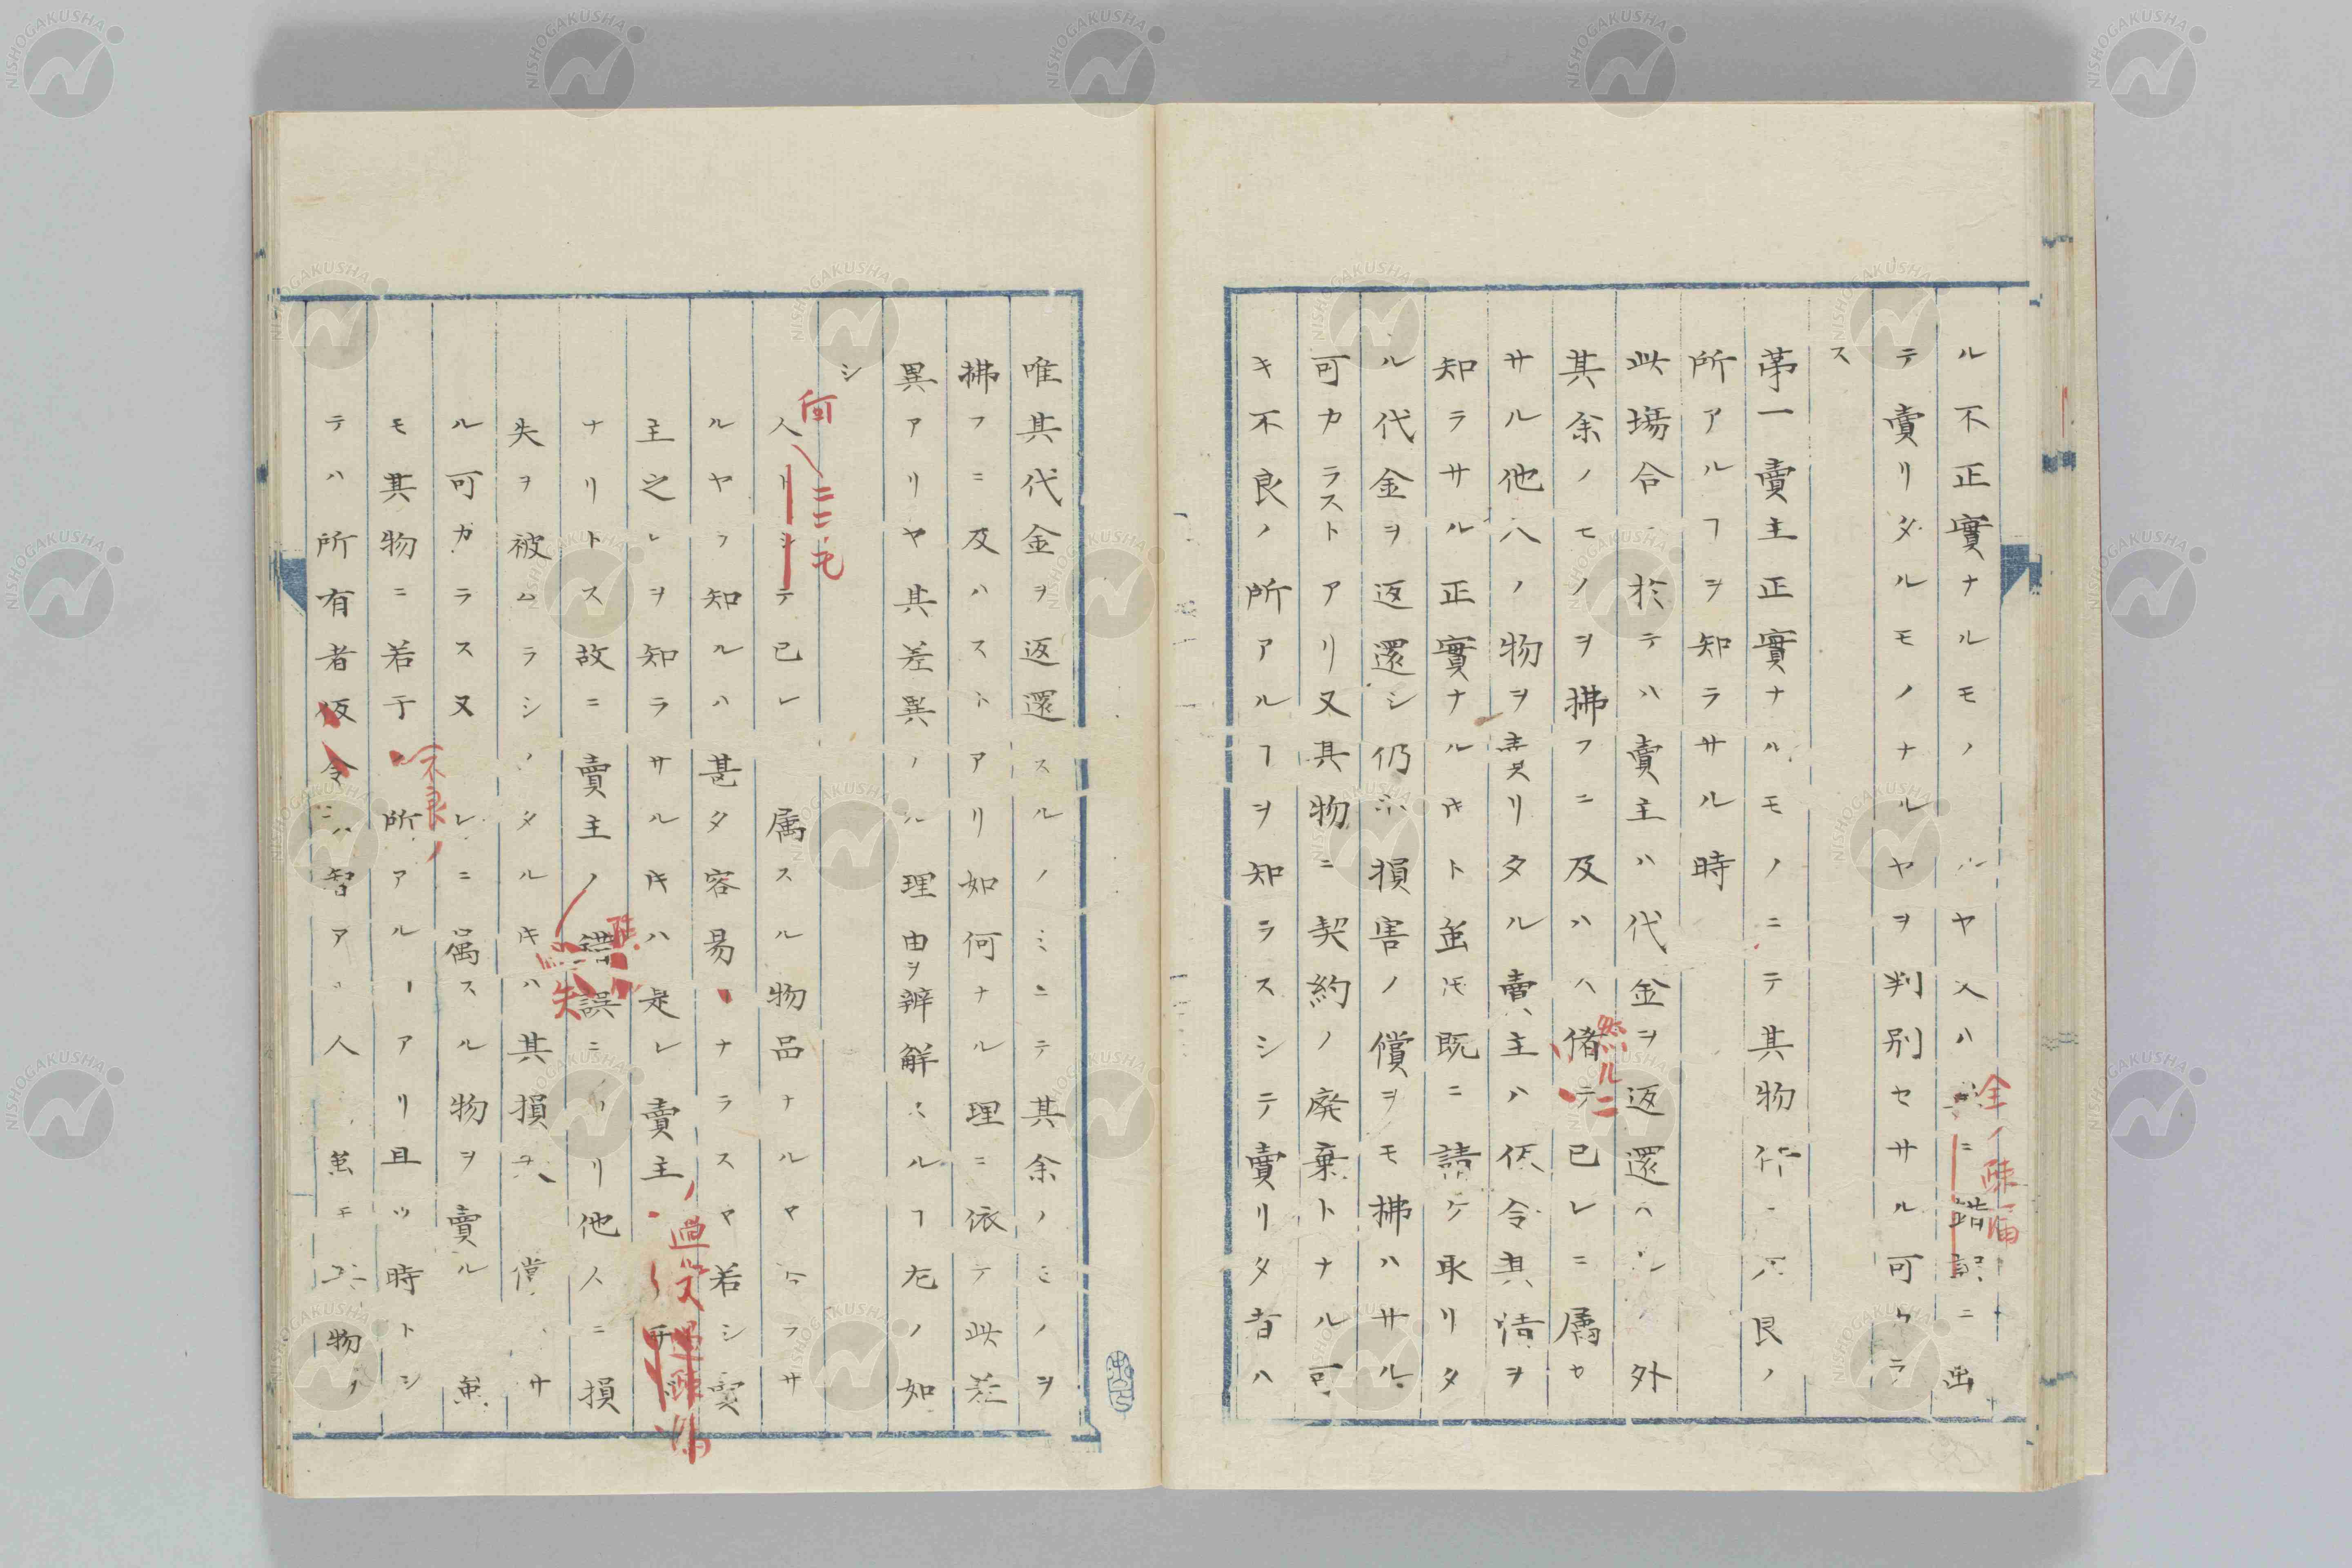 ル不正實ナルモノナルヤ又ハニ出
テ賣リタルモノナルヤヲ判別セサル可カラ
ス
第一賣主正實ナルモノニテ其物件ニ不良ノ
所アルヿヲ知ラサル時
此場合ニ於テハ賣主ハ代金ヲ返還スヘシ外
其余ノモノヲ拂フニ及ハス然ルニ己レニ属セ
サル他人ノ物ヲ賣リタル賣主ハ仮令其情ヲ
知ラサル正實ナルモノト雖モ既ニ請ケ取リタ
ル代金ヲ返還シ仍ホ損害ノ償ヲモ拂ハサル
可カラストアリ又其物ニ契約ノ廃棄トナル可
キ不良ノ所アルヿヲ知ラスシテ賣リタ者ハ
唯其代金ヲ返還スルノミニテ其余ノモノヲ
拂フニ及ハストアリ如何ナル理ニ依テ此差
異アリヤ其差異ノアル理由ヲ辨解スルヿ左ノ如
シ
何人ニモテ己レニ属スル物品ナルヤ否ラサ
ルヤヲ知ルハ甚タ容易ナラスヤ若シ賣
主之レヲ知ラサルトキハ是レ賣主ノ過失
ナリトス故ニ賣主ノニヨリ他人ニ損
失ヲ被ムラシメタルトキハ其損失ヲ償ハサ
ル可カラス又己レニ属スル物ヲ賣ルト雖
モ其物ニ若干不良ノ所アルヿアリ且ツ時トシ
テハ所有者智アル人ト雖モ其物ノ